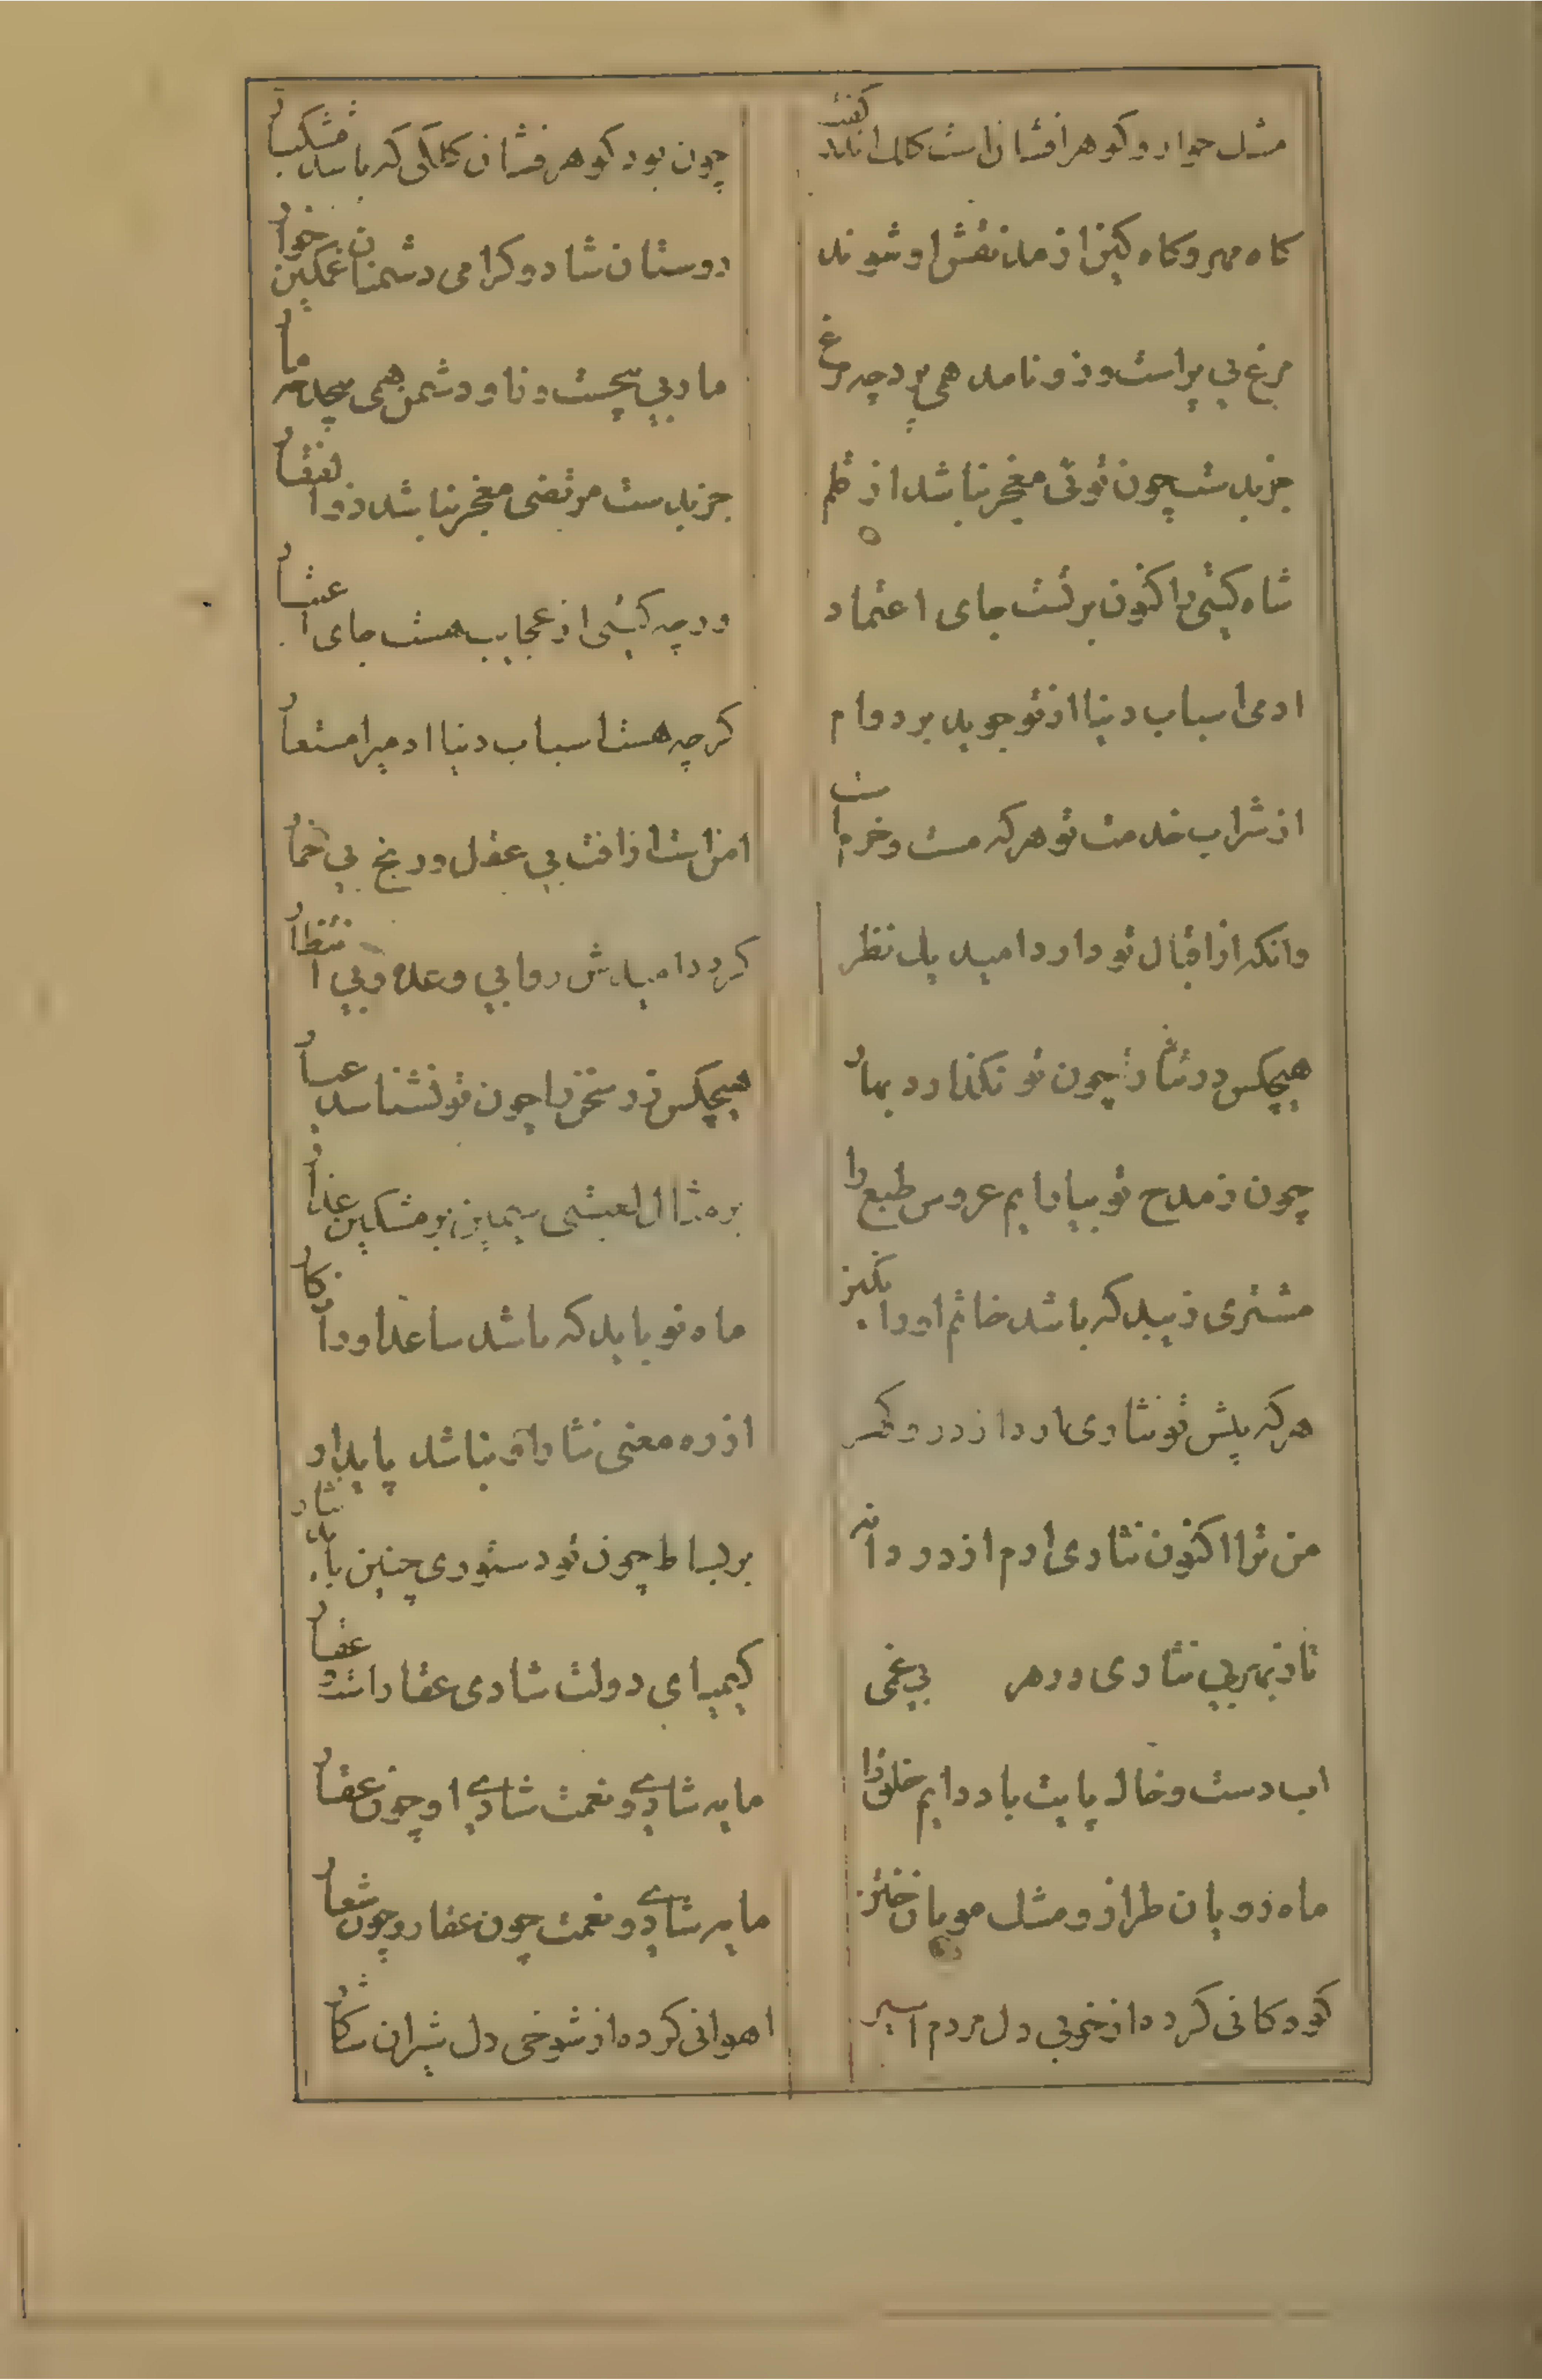 مشک‌خوار و گوهرافشان است کلک اندر کفت
چون بود گوهرفشان کلکی که باشد مشکبار
گاه مهر و گاه کین از مدّ نقش او شوند
دوستان شاد و گرامی دشمنان غمگین و خوار
مرغ بی پر است و زو نامد همی پرد چه مرغ
مار بی پیچست و زو دشمن همی پیچد چه مار
جز بدست چون توئی معجز نباشد از قلم
جز بدست مرتضی معجز نباشد ذوالفقار
شاه گیتی را کنون بر تست جای اعتماد
ور چه گیتی از عجایب هست جای اعتبار
ادمی اسباب دنیا از تو جوید بر دوام
گر چه هست اسباب دنیا ادمیرا مستعار
از شراب خدمت تو هر که مست و خرم است
امن است از افت بی عقل و رنج بی خمار
وانکه از اقبال تو دارد امید یک نظر
کردد امیدش روا بی وعده و بی انتظار
هیچکس در ثنا را چون تو نگذارد بها
هیچکس زر سخن را چون تو نشناسد عیار
چون ز مدح تو بیارایم عروس طبع را
بر مثال لعبتی سیمین بر مشکین عذار
مشتری زیبد که باشد خاتم او را نگین
ماه نو باید که باشد ساعد او را نگار
هر که پیش تو نثاری ارد از در و گهر
از ره معنی نثار او نباشد پایدار
من ترا اکنون نثاری ارم از در دانه
بر بساط چون تو دستوری چنین باید نثار
تا ز بهر بی نثاری در هر بی غمی
کیمیای دولت شادی عقار است و عقار
اب دست و خاک پایت باد دایم خلق را
مایه شادی و نعمت شادی او چون عقار
ماه رویان طراز و مشک مویان ختن
مایه شادی و نعمت چون عقار و چون شعار
کودکانی کرده از خوبی دل مردم اسیر
اهوانی کرده از شوخی دل شیران شکار